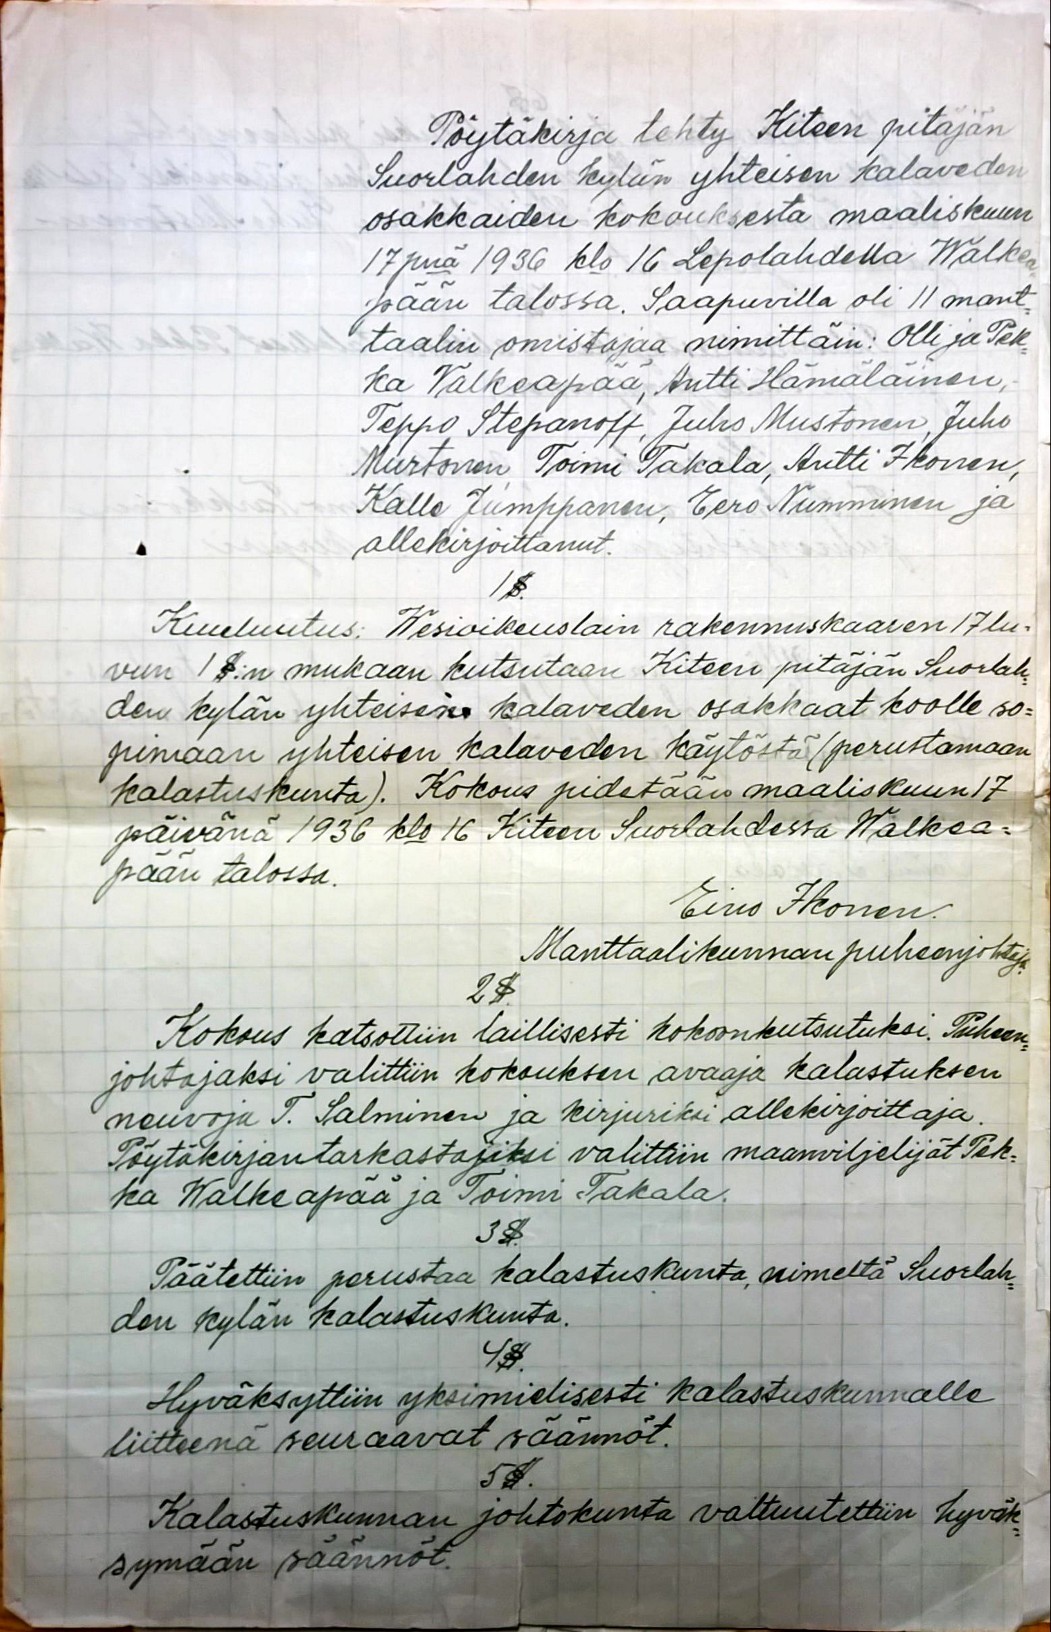 Pöytäkirja tehty Kiteen pitäjän
Suorlahden kylän yhteisen kalaveden
osakkaiden kokouksesta maaliskuun
17 pnä 1936 klo 16 Lepolahdella Walkea-
pään talossa. Saapuvilla oli 11 mant-
taalin omistajaa nimittäin: Olli ja Pek-
ka Valkeapää, Antti Hämäläinen,
Teppo Stepanoff, Juho Mustonen, Juho
Murtonen Toimi Takala, Antti Ikonen,
Kalle Jumppanen, Eero Numminen ja
allekirjoittanut.
1 §.
Kuulutus: Wesioikeuslain rakennuskaaren 17 lu-
vun 1 §:n mukaan kutsutaan Kiteen pitäjän Suorlah-
den kylän yhteisen kalaveden osakkaat koolle so-
pimaan yhteisen kalaveden käytöstä (perustamaan
kalastuskunta). Kokous pidetään maaliskuun 17
päivänä 1936 klo 16 Kiteen Suorlahdessa Walkea-
pään talossa.
Eino Ikonen.
Manttaalikunnan puheenjohtaja.
2 §.
Kokous katsottiin laillisesti kokoonkutsutuksi. Puheen-
johtajaksi valittiin kokouksen avaaja kalastuksen
neuvoja T. Salminen ja kirjuriksi allekirjoittaja.
Pöytäkirjantarkastajiksi valittiin maanviljelijät Pek-
ka Walkeapää ja Toimi Takala.
3 §.
Päätettiin perustaa kalastuskunta, nimeltä Suorlah-
den kylän kalastuskunta.
4 §.
Hyväksyttiin yksimielisesti kalastuskunnalle
liitteenä seuraavat säännöt.
5 §.
Kalastuskunnan johtokunta valtuutettiin hyväk-
symään säännöt.